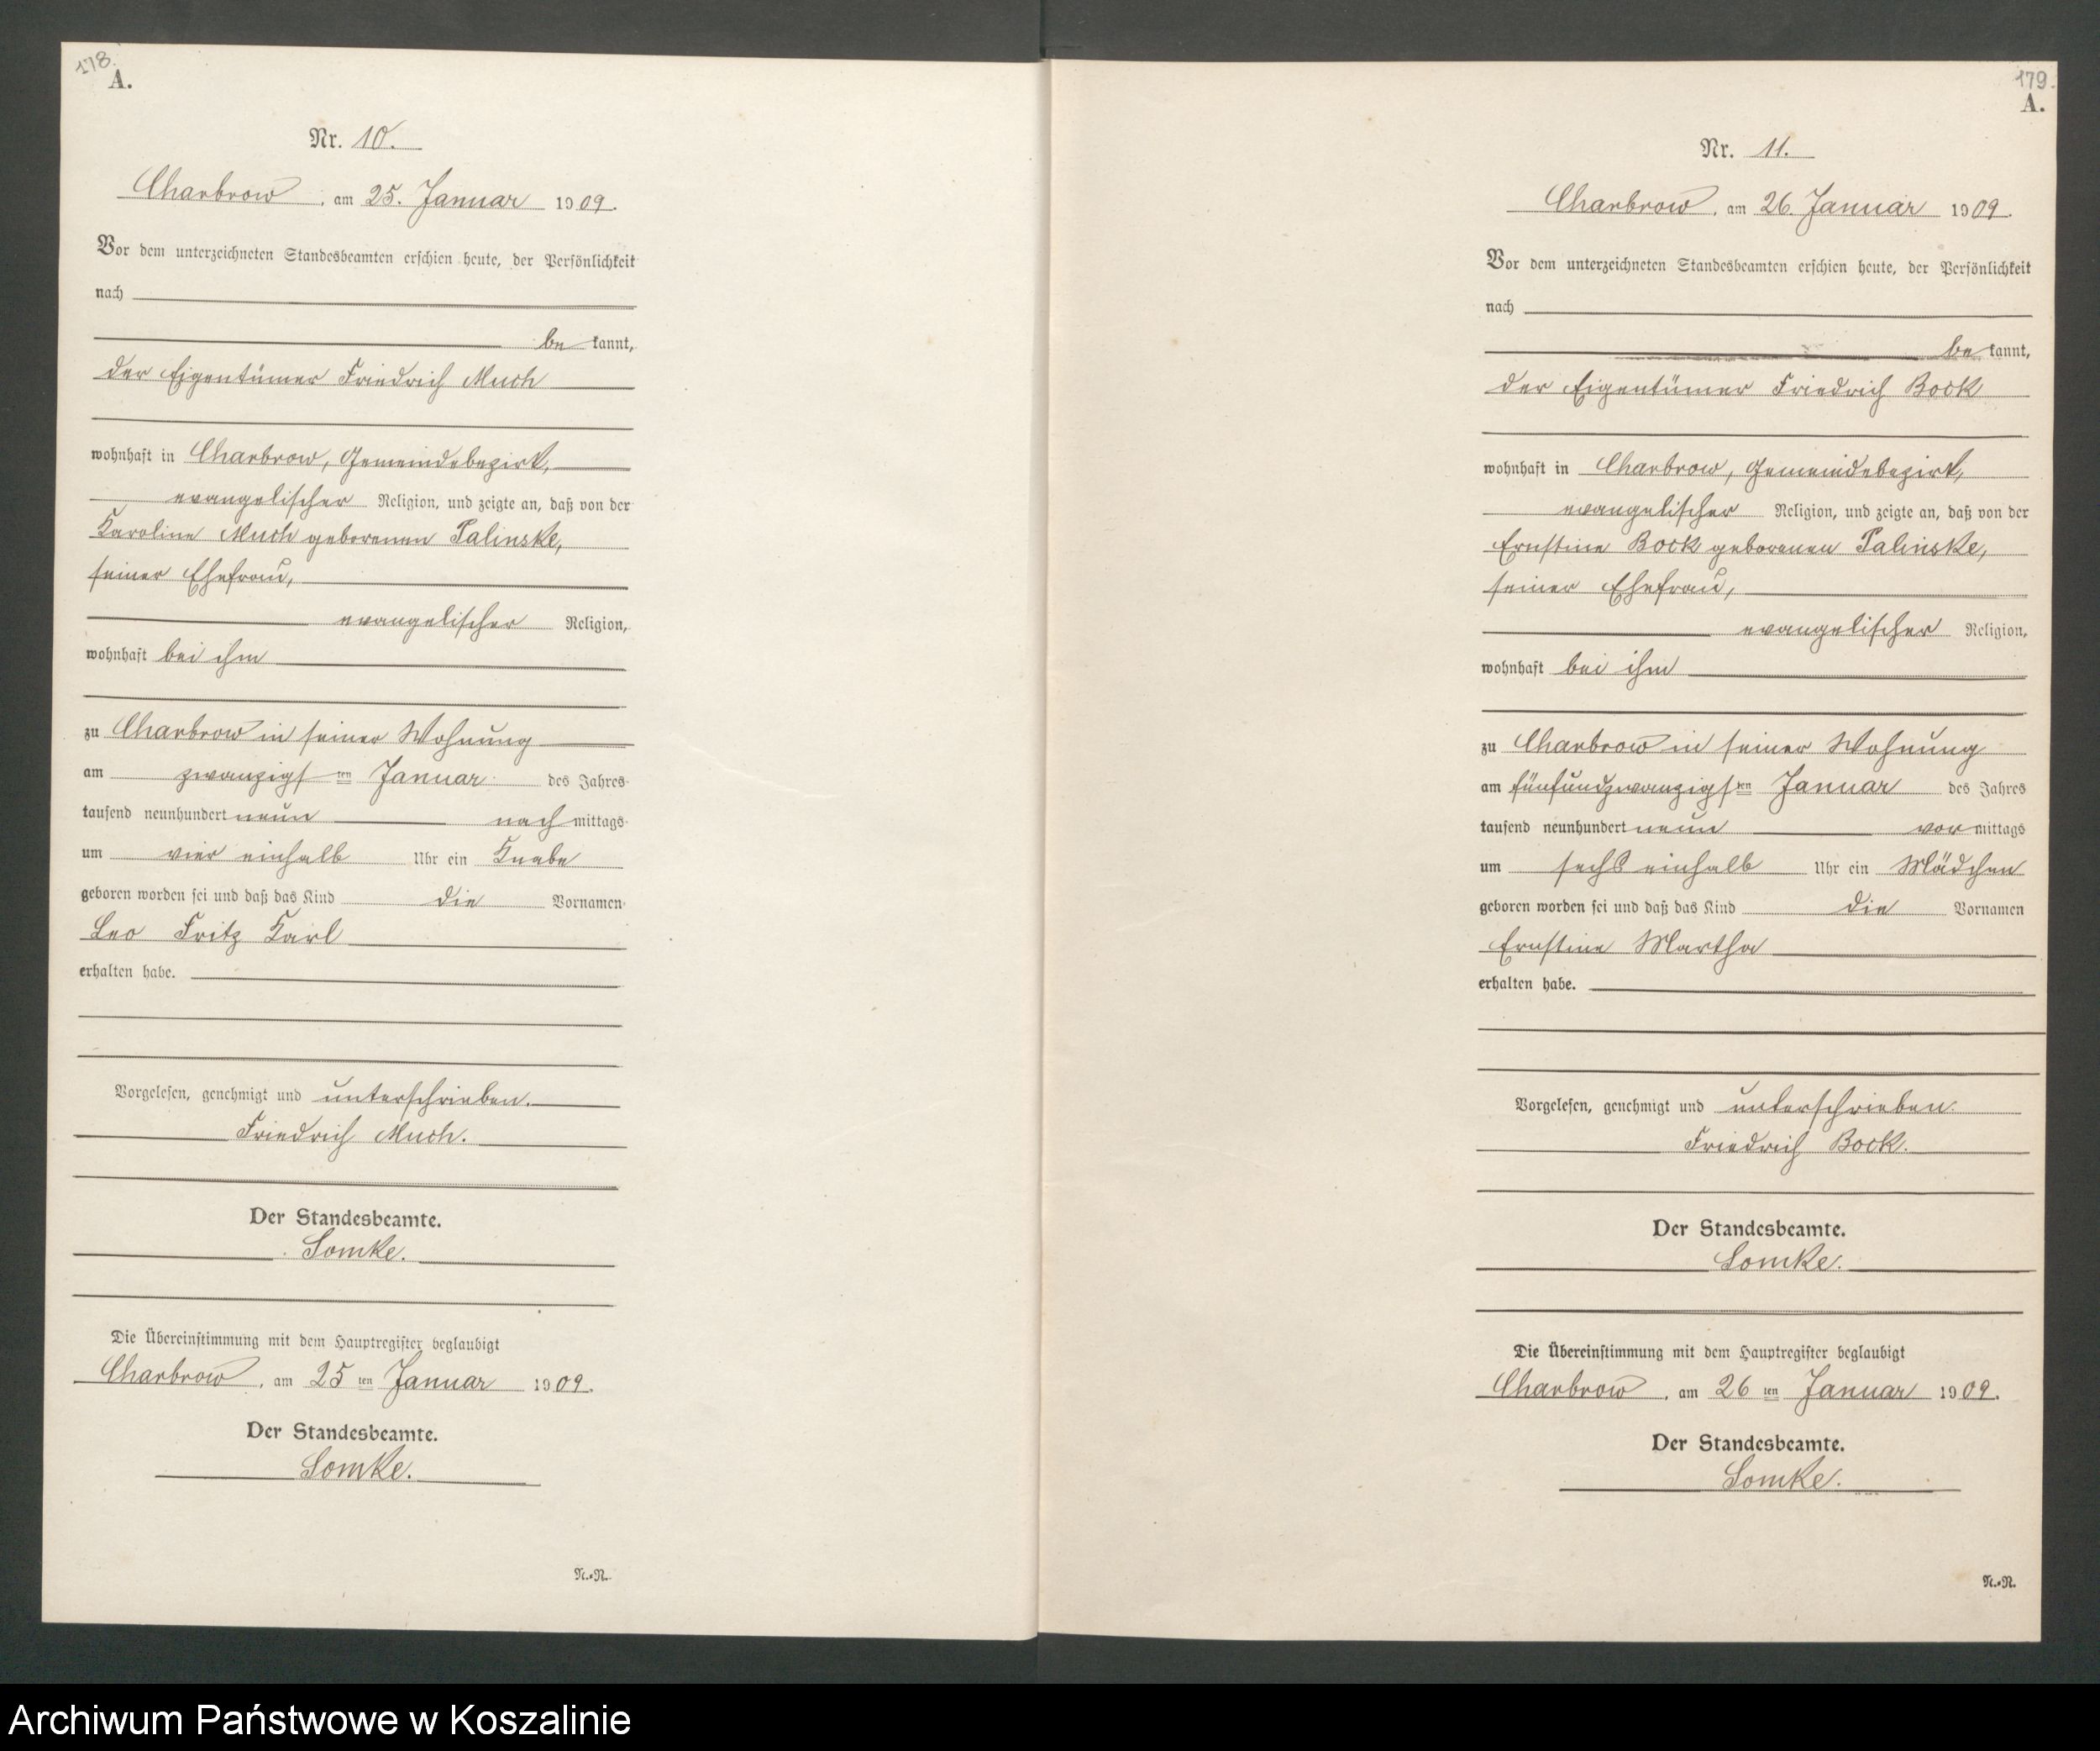 178.
A.
Nr. 10.
Charbrow, am 25. Januar 1909.
Vor dem unterzeichneten Standesbeamten erschien heute, der Persönlichkeit
nach
be kannt,
der Eigentümer Friedrich Much
wohnhaft in Charbrow, Gemeindebezirk,
evangelischer Religion, und zeigte an, daß von der
Karoline Much geborenen Palinske,
seiner Ehefrau,
evangelischer Religion,
wohnhaft bei ihm
zu Charbrow in seiner Wohnung
am zwanzigsten Januar des Jahres
tausend neunhundert neun nach mittags
um vier einhalb Uhr ein Knabe
geboren worden sei und daß das Kind die Vornamen
Leo Fritz Karl
erhalten habe.
Vorgelesen, genehmigt und unterschrieben.
Friedrich Much.
Der Standesbeamte.
Lomke.
Die Übereinstimmung mit dem Hauptregister beglaubigt
Charbrow, am 25 ten Januar 1909.
Der Standesbeamte.
Lomke.
N.=R.
179.
A.
Nr. 11.
Charbrow, am 26. Januar 1909.
Vor dem unterzeichneten Standesbeamten erschien heute, der Persönlichkeit
nach
be kannt,
der Eigentümer Friedrich Bock
wohnhaft in Charbrow, Gemeindebezirk,
evangelischer Religion, und zeigte an, daß von der
Ernstine Bock geborenen Palinske,
seiner Ehefrau,
evangelischer Religion,
wohnhaft bei ihm
zu Charbrow in seiner Wohnung
am fünfundzwanzigsten Januar des Jahres
tausend neunhundert neun vor mittags
um sechs einhalb Uhr ein Mädchen
geboren worden sei und daß das Kind die Vornamen
Ernstine Martha
erhalten habe.
Vorgelesen, genehmigt und unterschrieben.
Friedrich Bock.
Der Standesbeamte.
Lomke.
Die Übereinstimmung mit dem Hauptregister beglaubigt
Charbrow, am 26 ten Januar 1909.
Der Standesbeamte.
Lomke.
N.=R.
Archiwum Państwowe w Koszalinie